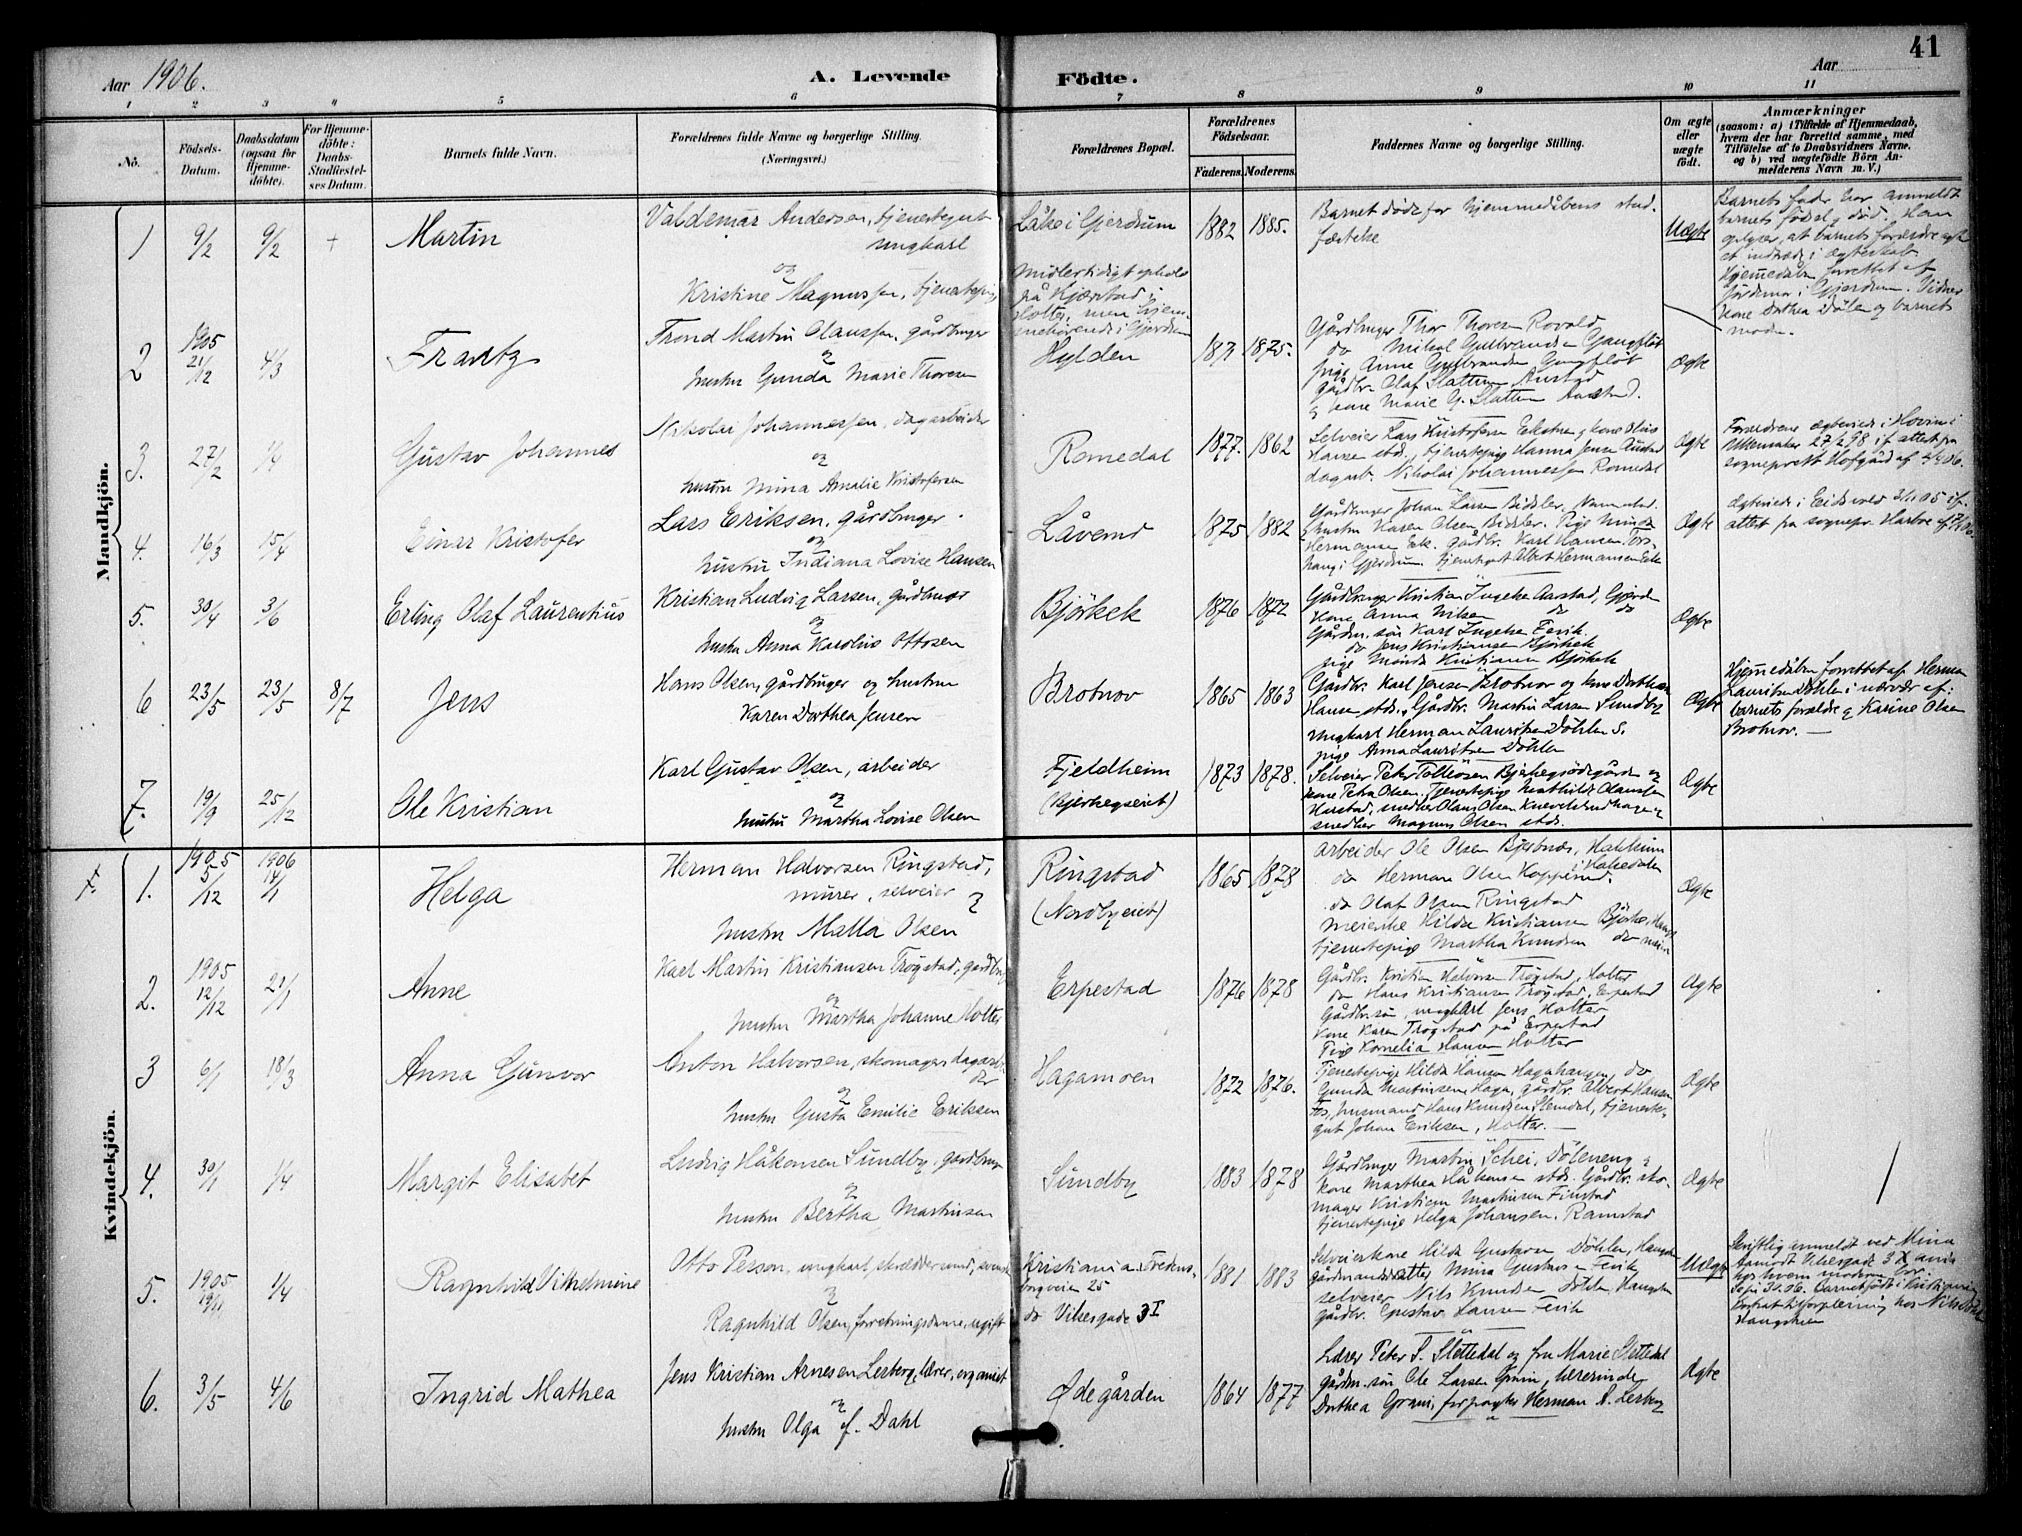 41
Aar 1906. A. Levende Födte. Aar
1 2 3 4 5 6 7 8 9 10 11
No. Födsels-Datum. Daabsdatum (ogsaa for Hjemmedöbte). For Hjemmedöbte: Daabs-Stadfæstelses Datum. Barnets fulde Navn. Forældrenes fulde Navne og borgerlige Stilling. (Næringsvei.) Forældrenes Bopæl. Forældrenes Födselsaar. Faderens. Moderens. Faddernes Navne og borgerlige Stilling. Om ægte eller uægte födt. Anmærkninger (saasom: a) i Tilfælde af Hjemmedaab, hvem der har forrettet samme, med Tilföielse af to Daabsvidners Navne. og b) ved uægtefödte Börn Anmelderens Navn m.V.)
Mandkjön.
1 9/2 9/2 + Martin
Valdemar Andersen, tjenestegut
ungkarl
og
Kristine Magnussen, tjenestepig
Låke i Gjerdrum
Midlertidigt ophold
på Kjærstad i
Holter, men hjem-
mehörende i Gjerdrum
1882 1885.
Barnet döde för hjemmedåbens stad-
fæstelse
Uægte
Barnets fader har anmeldt
barnets födsel og död. Han
oplyser, at barnets forældre
indtræde i ægteskab.
Hjemmedåben forrettet af
Gjerdrum. Vidner
kone Dorthea Dölen og barnets
moder.
2 1905 21/12 4/3 Frantz
Trond Martin Olaussen, gårdbruger
og
hustru Gunda Marie Thoresen
Hylden 1871 1875.
Gårdbruger Thor Thoresen Rovold
do Mikal Gulbrandsen Gangflöt
pige Anne Gulbrandsen Gangflöt
gårdbr. Olaf Slatten Austad
og kone Marie G. Slatten Austad.
Ægte
3. 27/2 1/4 Gustav Johannes
Nikolai Johannessen, dagarbeider
og
hustru Mina Amalie Kristofersen
Romedal 1877. 1862
Selveier Lars Kristofersen Ekstrn og kone
Hansen stds., tjenestepig Hanna Jensen Austad
dagarb. Nikolai Johannessen Romedal
Ægte
Forældrene ægteviede i Hovin i
Ullensaker 27/2 98 if. attest fra
sogneprest Hofgård af 4/4 06.
4. 16/3 15/4 Einar Kristofer
Lars Eriksen, gårdbruger.
og
hustru Indiana Lovise Hansen
Låverud 1875 1882
Gårdbruger Johan Larsen Bidsler, Nannestad.
hustru Karen Olsen Bidsler. Pige Minda
Hermansen Eek. gårdbr. Karl Hansen Tors-
haug i Gjerdrum. tjenestegut Albert Hermansen Eek
Ægte
Ægteviede i Eidsvold 3/11 05 if.
attest fra sognepr. Harboe af
5. 30/4 3/6 Erling Olaf Laurentius
Kristian Ludvig Larsen, gårdbruger
og
hustru Anna Karoline Ottosen
Bjørkek 1876 1872
Gårdbruger Kristian Ingelsen Aarstad, Gjerdr.
Kone Anna Nilsen do do
Gårdm. sön Karl Ingelsen Ferik.
do Jens Kristiansen Bjørkek
pige Minda Kristiansen Bjørkek
Ægte
6 23/5 23/5 8/7 Jens
Hans Olsen, gårdbruger og hustru
Karen Dorthea Jensen
Brotnov 1865 1863
Gårdbr. Karl Jensen Brotnov og kone Dorthea
Hansen stds., Gårdbr. Martin Larsen Sundby
ungkarl Herman Lauritsen Döhlen S.
pige Anna Lauritsen Döhlen
Ægte
Hjemmedåben forrettet af Herman
Lauritsen Döhlen i nærvær af:
barnets forældre og Karine Olsen
Brotnov. —
7. 19/9 25/12 Ole Kristian
Karl Gustav Olsen, arbeider
og
hustru Martha Lovise Olsen
Fjeldheim
(Bjerkegseiet)
1873 1878.
Selveier Peter Tollefsen Bjerkegsödegården og
kone Petra Olsen, Tjenestepige Mathilde Olaussen
Harstad, snedker Olaus Olsen Knevelsrudhagen og
snedker Magnus Olsen stds.
Ægte
Kvindekjön.
F. 1. 1905 5/12 1906 14/1 Helga
Herman Halvorsen Ringstad,
murer, selveier og
hustru Malla Olsen
Ringstad
(Nordbyeiet)
1865 1878
Arbeider Ole Olsen Bjerknes, Hakkim
do Herman Olsen Kopperud. i Hakedalen
do Olaf Olsen Ringstad
meierske Hilda Kristiansen Bjerke,
tjenestepige Martha Knudsen do
Ægte
2. 1905 12/12 21/1 Anne
Karl Martin Kristiansen Trøgstad, gårdbrug
og
hustru Martha Johanne Holter
Erpestad 1876 1878
Gårdbr. Kristian Halvorsen Trøgstad, Holter
do Hans Kristiansen Trøgstad, Erpestad
Gårdbr. sön, ungkarl Jens Holter
Kone Karen Trøgstad på Erpestad
Pige Kornelia Hansen Holter
Ægte
3 6/1 18/3 Anna Gunvor
Anton Halvorsen, skomager, dagarbei-
der
og
hustru Gusta Emilie Eriksen
Hagamoen 1872 1876.
Tjenestepige Hilda Hansen Hagahaugen, do
Gunda Martinsen Haga, gårdbr. Albert Hansen
Fos, husmand Hans Knudsen Slemdal, tjeneste-
gut Johan Eriksen, Holter. —
Ægte
4. 30/1 1/4 Margit Elisabet
Ludvig Håkonsen Sundby, gårdbruger
og
hustru Bertha Martinsen
Sundby 1883 1878
Gårdbruger Martin Schei, Döleneng og
kone Marthea Håkonsen stds. Gårdbr. sko-
mager Kristian Martinsen Finstad
tjenestepige Helga Johansen, Ramstad
Ægte
5. 1905 19/11 1/4 Ragnhild Vilhelmine
Otto Persson, ungkarl, skræddersvend, svensk
og
Ragnhild Olsen, forretningsdame, ugift
Kristiania. Fredens-
borgveien 25
do Vilsesgade 3 I
1881 1883
Selveierkone Hilda Gustavsen Döhlen, Haugsten
gårdmandsdatter Mina Gustavsen Ferik
selveier Nils Knudsen Döhlen Haugsten
gårdbr. Gustav Hansen Ferik
Uægte
Skriftlig anmeldt ved Mina
Aamodt Vilsesgade 3
hos hvem moderen bor.
Barnet födt i Kristiania
bortsat til forpleining hos Nils
Haugsten
6. 3/5 4/6 Ingrid Mathea
Jens Kristian Arnesen Lerberg, lærer, organist
og
hustru Olga f. Dahl
Ødegården 1864 1877
Lærer Peter S. Slettedal og fru Marie Slettedal
gårdm. sön Ole Larsen Grini, lærerinde
Dorthea Grini, forpagter Herman A. Lerberg
Ægte